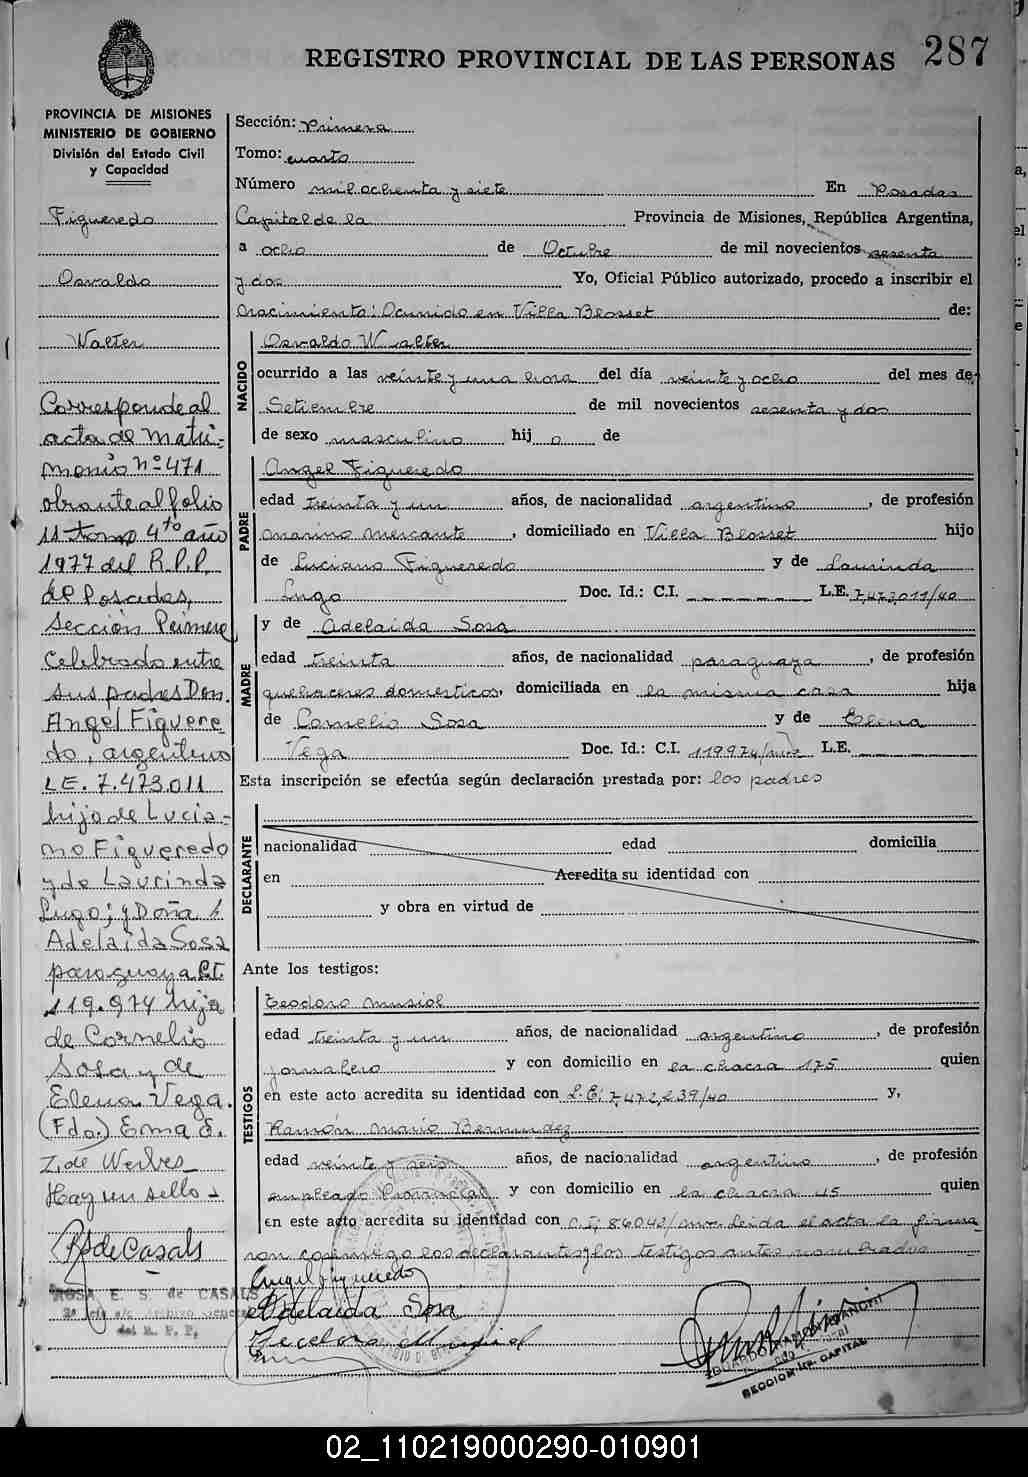 REGISTRO PROVINCIAL DE LAS PERSONAS 287
PROVINCIA DE MISIONES
MINISTERIO DE GOBIERNO
División del Estado Civil
y Capacidad
Figueredo
Osvaldo
Walter
Corresponde al
acta de Matri-
monio nº 471
obrante al folio
11 tomo 4to año
1977 del R.P.P.
de Posadas,
sección Primera
Celebrado entre
sus padres Don.
Angel Figuere
do, argentino
LE. 7.473.011
hijo de Lucia-
no Figueredo
y de Laurinda
Lugo; y Doña
Adelaida Sosa
paraguaya C.I.
119.974 hija
de Cornelio
Sosa y de
Elena Vega.
(Fdo.) Erma E.
Z. de Werbes
Hay un sello -
R S de Casals
ROSA E. S. de CASALS
del R. P. P.
Sección: Primera
Tomo: cuarto
Número mil ochenta y siete En Posadas
Capital de la Provincia de Misiones, República Argentina,
a ocho de Octubre de mil novecientos sesenta
y dos Yo, Oficial Público autorizado, procedo a inscribir el
nacimiento: Ocurrido en Villa Blosset de:
NACIDO
Osvaldo Walter
ocurrido a las veinte y una hora del día veinte y ocho del mes de
Setiembre de mil novecientos sesenta y dos
de sexo masculino hij o de
PADRE
Angel Figueredo
edad treinta y un años, de nacionalidad argentino, de profesión
marino mercante, domiciliado en Villa Blosset hijo
de Luciano Figueredo y de Laurinda
Lugo Doc. Id.: C.I. L.E. 7,473,011/40
MADRE
y de Adelaida Sosa
edad treinta años, de nacionalidad paraguaya, de profesión
quehaceres domesticos, domiciliada en la misma casa hija
de Cornelio Sosa y de Elena
Vega Doc. Id.: C.I. 119974/ L.E.
Esta inscripción se efectúa según declaración prestada por: los padres
DECLARANTE
nacionalidad edad domicilia
en Acredita su identidad con
y obra en virtud de
Ante los testigos:
TESTIGOS
Teodoro Musiol
edad treinta y un años, de nacionalidad argentino, de profesión
jornalero y con domicilio en la chacra 175 quien
en este acto acredita su identidad con L.E. 7,472,239/40 y,
Ramón Mario Bermudez
edad veinte y seis años, de nacionalidad argentino, de profesión
empleado Provincial y con domicilio en la chacra 45 quien
en este acto acredita su identidad con C.I. 86042/ leida el acta la firma
ron conmigo los declarantes y los testigos antes nombrados
Angel figueredo
Adelaida Sosa
SECCION 1ra. CAPITAL
02_110219000290-010901